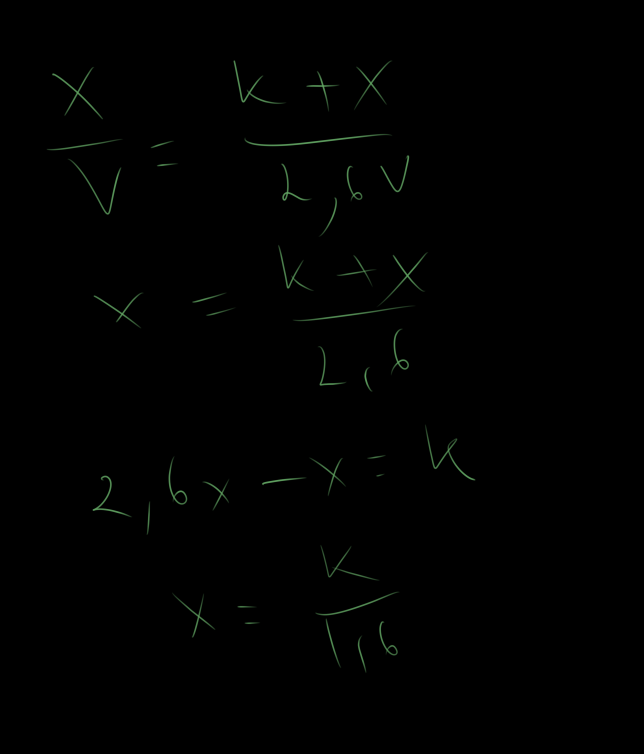 x/V = k+x/2,6V
x = k+x/2,6
2,6x-x=k
x = k/1,6